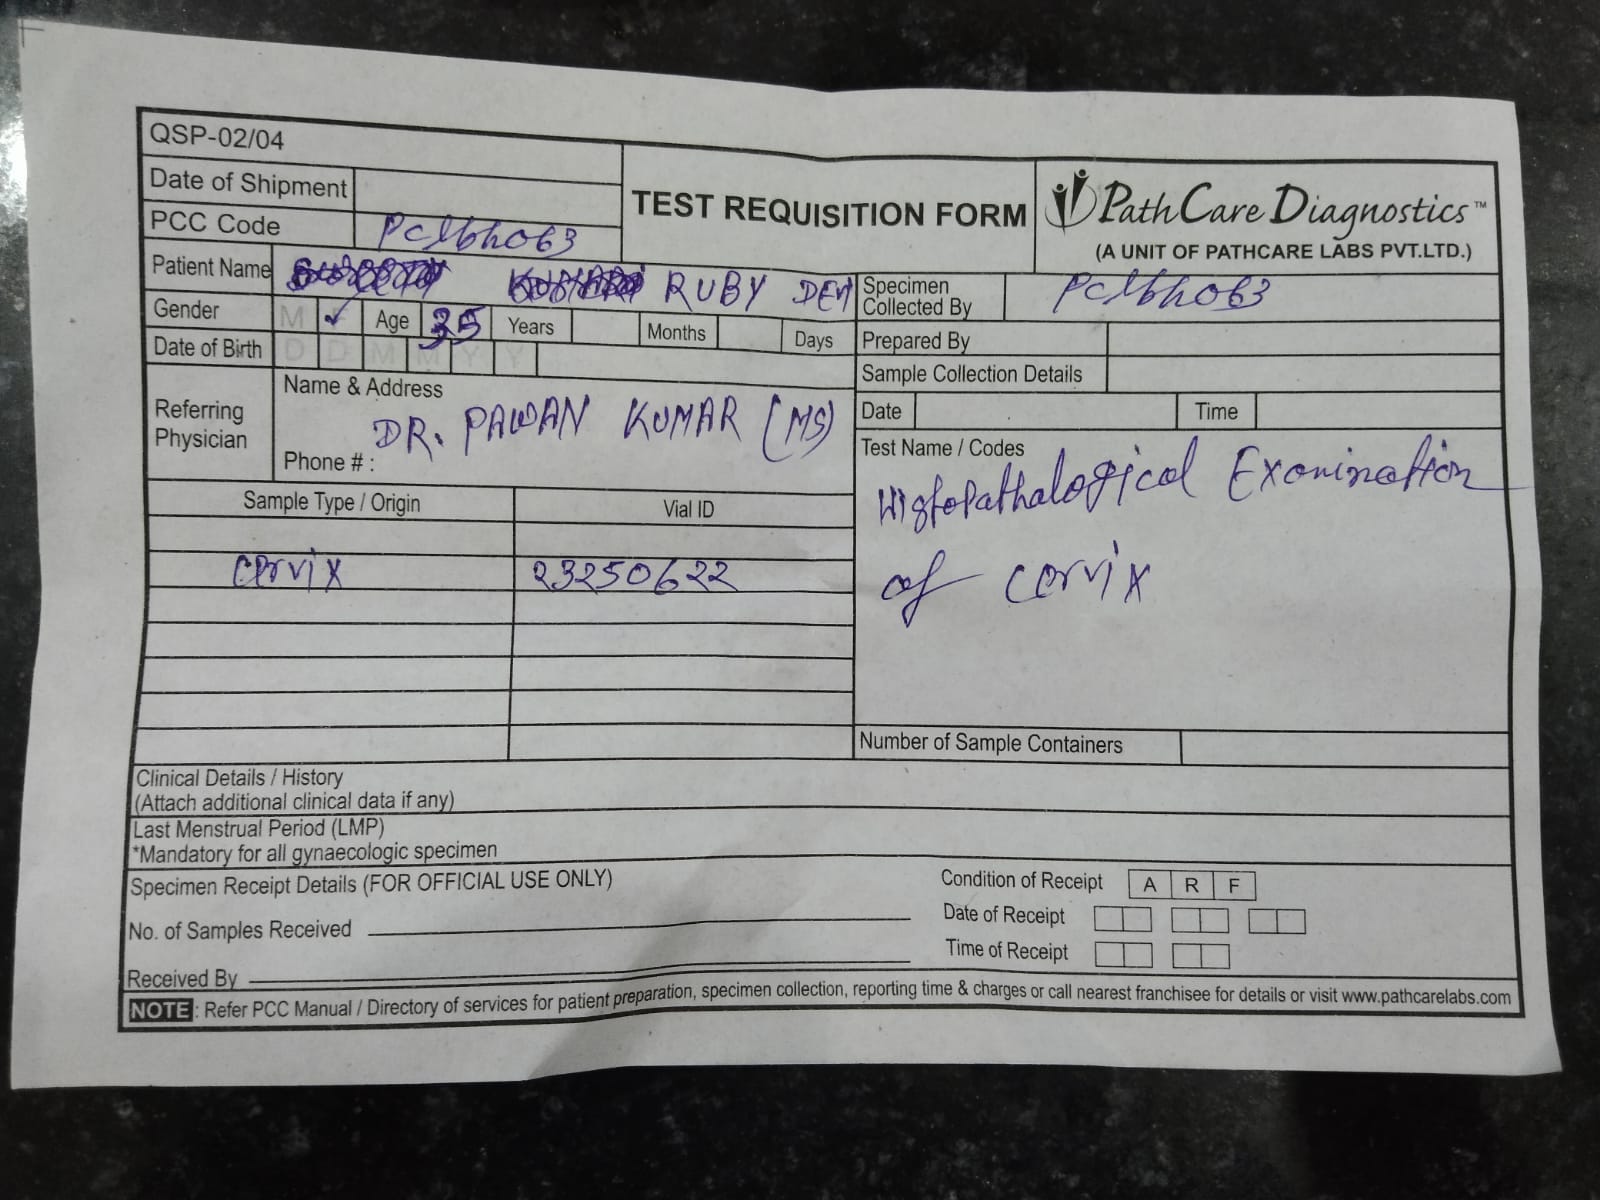 QSP-02/04
Date of Shipment
PCC Code PclbhO63
TEST REQUISITION FORM
PathCare Diagnostics™
(A UNIT OF PATHCARE LABS PVT.LTD.)
Patient Name RUBY DEVI
Gender M Age 35 Years Months Days
Date of Birth D D M M Y Y
Referring Physician
Name & Address
DR. PAWAN KUMAR (MS)
Phone # :
Specimen Collected By PclbhO63
Prepared By
Sample Collection Details
Date Time
Test Name / Codes
Histopathalogical Examination
of cervix
Sample Type / Origin Vial ID
cervix 23250622
Number of Sample Containers
Clinical Details / History
(Attach additional clinical data if any)
Last Menstrual Period (LMP)
*Mandatory for all gynaecologic specimen
Specimen Receipt Details (FOR OFFICIAL USE ONLY)
Condition of Receipt A R F
No. of Samples Received
Date of Receipt
Time of Receipt
Received By
NOTE : Refer PCC Manual / Directory of services for patient preparation, specimen collection, reporting time & charges or call nearest franchisee for details or visit www.pathcarelabs.com